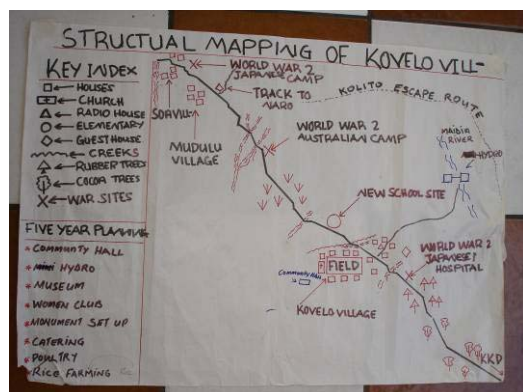 STRUCTUAL MAPPING OF KOVELO VILL-
KEY INDEX
HOUSES
CHURCH
RADIO HOUSE
ELEMENTARY
GUEST HOUSE
CREEKS
RUBBER TREES
COCOA TREES
WAR SITES
FIVE YEAR PLANNING
* COMMUNTY HALL
* HYDRO
* MUSEUM
* WOMEN CLUB
* MONUMENT SET UP
* CATERING
* POULTRY
* RICE FARMING
WORLD WAR 2
JAPANESE
CAMP
TRACK TO
NARO
KOLITO ESCAPE ROUTE
MUDULU
VILLAGE
WORLD WAR 2
AUSTRALIAN CAMP
RIVER
HYDRO
NEW SCHOOL SITE
FIELD
WORLD WAR 2
JAPANESE
HOSPITAL
KOVELO VILLAGE
KKD